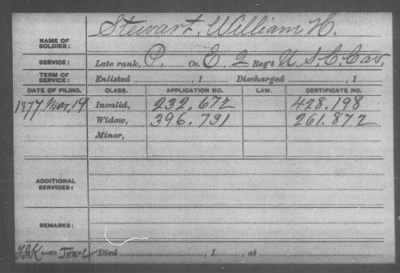 NAME OF SOLDIER: Stewart, William H.
SERVICE: Late rank, P. Co. E, 2 Reg't U S C Cav,
TERM OF SERVICE: Enlisted , 1 Discharged , 1
DATE OF FILING. CLASS. APPLICATION NO. LAW. CERTIFICATE NO.
1877 Mar, 19 Invalid, 232,672 428,198
Widow, 396,731 261,872
Minor,
ADDITIONAL SERVICES:
REMARKS:
Died , 1 , at